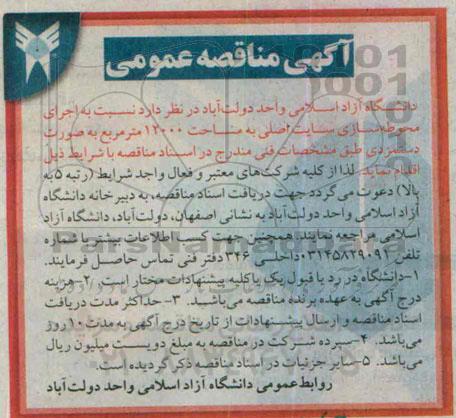 آگهی مناقصه عمومی
دانشگاه آزاد اسلامی واحد دولت‌آباد در نظر دارد نسبت به اجرای
محوطه‌سازی سایت اصلی به مساحت ۱۲۰۰۰ مترمربع به صورت
دستمزدی طبق مشخصات فنی مندرج در اسناد مناقصه با شرایط ذیل
اقدام نماید. لذا از کلیه شرکت‌های معتبر و فعال واجد شرایط (رتبه ۵ به
بالا) دعوت می‌گردد جهت دریافت اسناد مناقصه، به دبیرخانه دانشگاه
آزاد اسلامی واحد دولت‌آباد به نشانی اصفهان، دولت‌آباد، دانشگاه آزاد
اسلامی مراجعه نمایند. همچنین جهت کسب اطلاعات بیشتر با شماره
تلفن ۰۳۱۴۵۸۲۹۰۹۱ داخلی ۳۴۶ دفتر فنی تماس حاصل فرمایند.
۱-دانشگاه در رد یا قبول یک یا کلیه پیشنهادات مختار است. ۲-هزینه
درج آگهی به عهده برنده مناقصه می‌باشد. ۳-حداکثر مدت دریافت
اسناد مناقصه و ارسال پیشنهادات از تاریخ درج آگهی به مدت ۱۰ روز
می‌باشد. ۴-سپرده شرکت در مناقصه به مبلغ دویست میلیون ریال
می‌باشد. ۵-سایر جزئیات در اسناد مناقصه ذکر گردیده است.
روابط عمومی دانشگاه آزاد اسلامی واحد دولت‌آباد
ParsNamadData